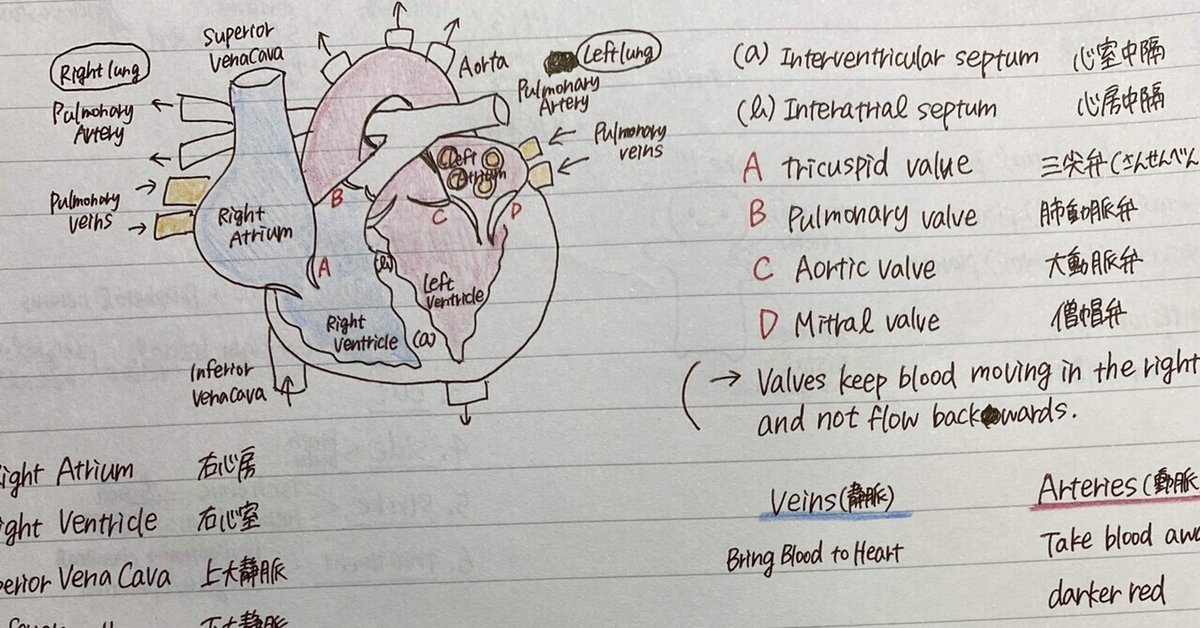 Superior
Vena Cava
Right lung
Pulmonary
Artery
Pulmonary
veins
Aorta
Left lung
Pulmonary
Artery
Pulmonary
veins
Left
Atrium
Right
Atrium
A
B
C
D
(b)
(a)
Left
Ventricle
Right
Ventricle
Inferior
Vena Cava
(a) Interventricular septum 心室中隔
(b) Interatrial septum 心房中隔
A tricuspid value 三尖弁(さんせんべん
B Pulmonary valve 肺動脈弁
C Aortic valve 大動脈弁
D Mitral valve 僧帽弁
→ Valves keep blood moving in the right
and not flow backwards.
ight Atrium 右心房
ght Ventricle 右心室
perior Vena Cava 上大静脈
下大静脈
Veins(静脈)
Bring Blood to Heart
Arteries(動脈
Take blood awa
darker red